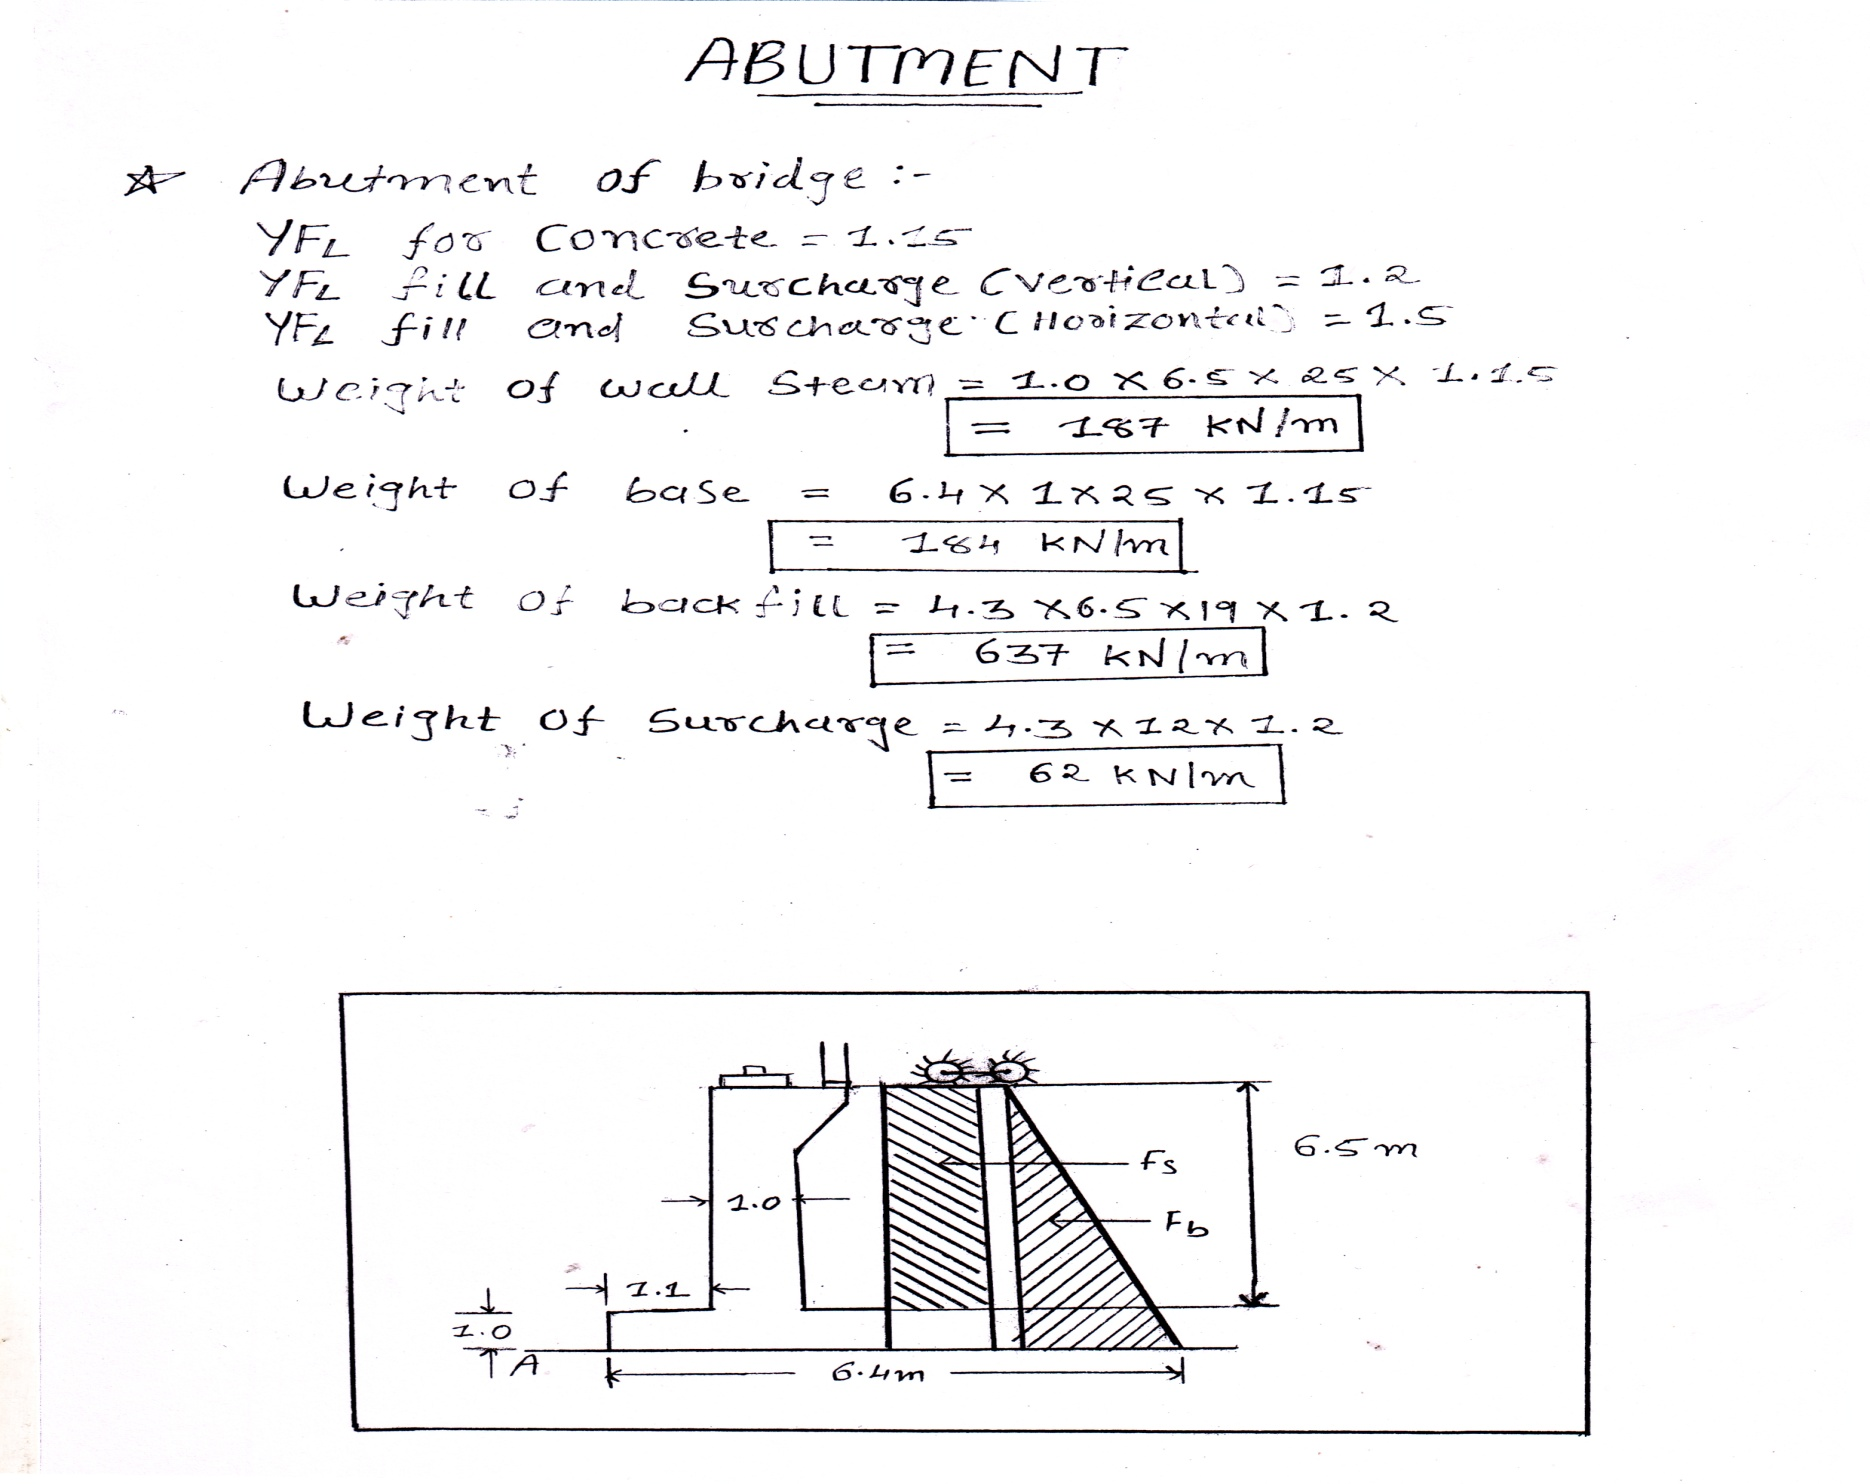 ABUTMENT
☆ Abutment of bridge :-
YFL for Concrete = 1.15
YFL fill and Surcharge (Vertical) = 1.2
YFL fill and Surcharge (Horizontal) = 1.5
Weight of wall Steam = 1.0 X 6.5 X 25 X 1.15
= 187 KN/m
Weight of base = 6.4 X 1 X 25 X 1.15
= 184 KN/m
Weight of back fill = 4.3 X 6.5 X 19 X 1.2
= 637 KN/m
Weight of Surcharge = 4.3 X 12 X 1.2
= 62 KN/m
6.5 m
Fs
1.0
Fb
1.1
1.0
A
6.4m